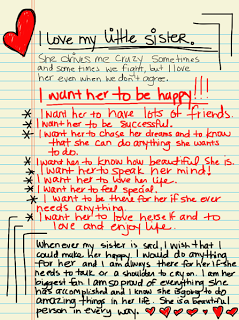 I love my little sister.
She drives me crazy sometimes
and sometimes we fight, but I love
her even when we don't agree.
I want her to be happy!!!
* I want her to have lots of friends.
* I want her to be successful.
* I want her to chase her dreams and to know
that she can do anything she wants
to do.
* I want her to know how beautiful she is.
* I want her to speak her mind!
* I want her to love her life.
* I want her to feel special.
* I want to be there for her if she ever
needs anything.
* I want her to love herself and to
love and enjoy life.
Whenever my sister is sad, I wish that I
could make her happy. I would do anything
for her and I am always there for her if she
needs to talk or a shoulder to cry on. I am her
biggest fan. I am so proud of everything she
has accomplished and I know she is going to do
amazing things in her life. She is a beautiful
person in every way.